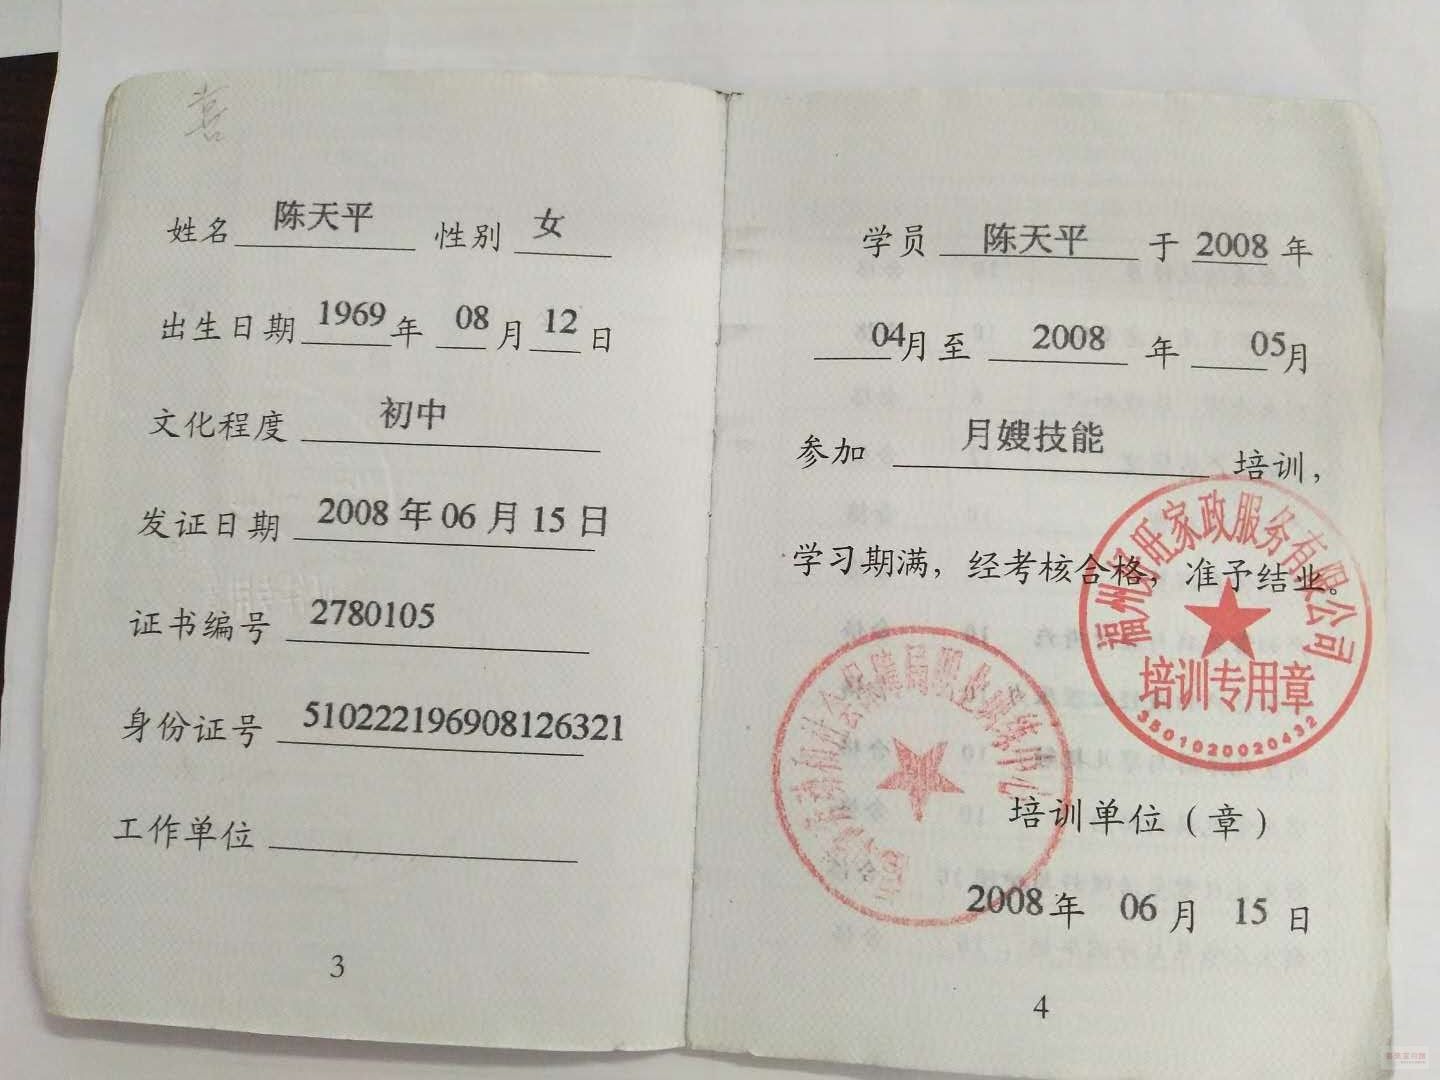 喜
姓名 陈天平 性别 女
出生日期 1969 年 08 月 12 日
文化程度 初中
发证日期 2008 年 06 月 15 日
证书编号 2780105
身份证号 510222196908126321
工作单位
3
学员 陈天平 于 2008 年
04月至 2008 年 05月
参加 月嫂技能 培训，
学习期满，经考核合格，准予结业。
福州好旺家政服务有限公司
培训专用章
3501020020432
劳动和社会保障局职业训练中心
培训单位（章）
2008年 06 月 15 日
4